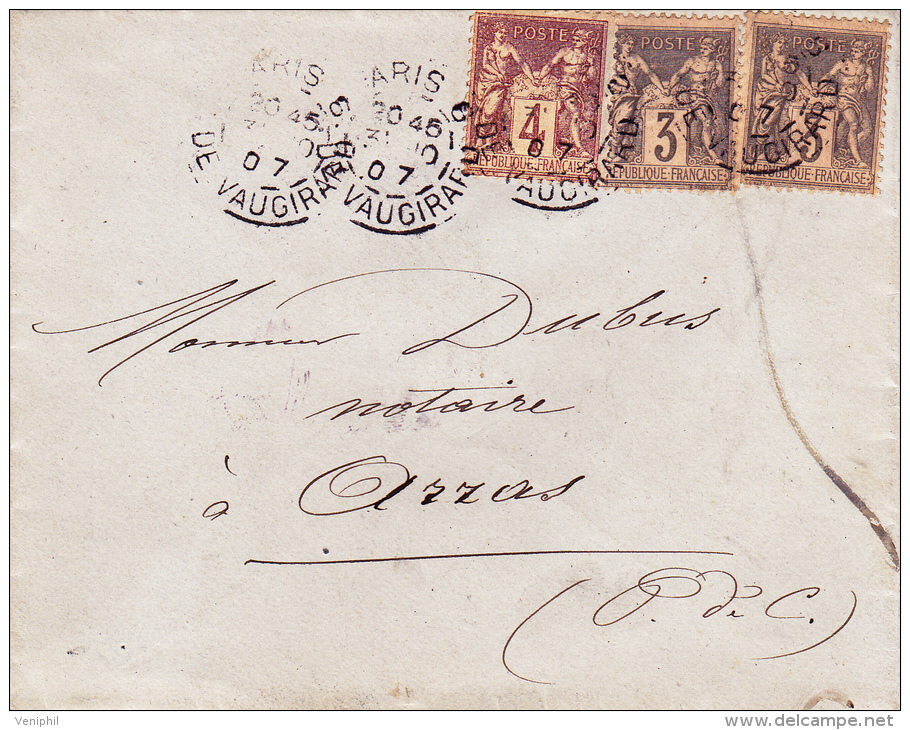 POSTE POSTE POSTE
4 3 3
RÉPUBLIQUE·FRANÇAISE RÉPUBLIQUE·FRANÇAISE RÉPUBLIQUE·FRANÇAISE
ARIS ARIS
20 45 20 45
07 07 07 07
DE VAUGIRARD VAUGIRARD VAUGIRARD DE VAUGIRARD
Monsieur Dubus
notaire
à Arras
(P. de C.)
Veniphil
delcampe.net